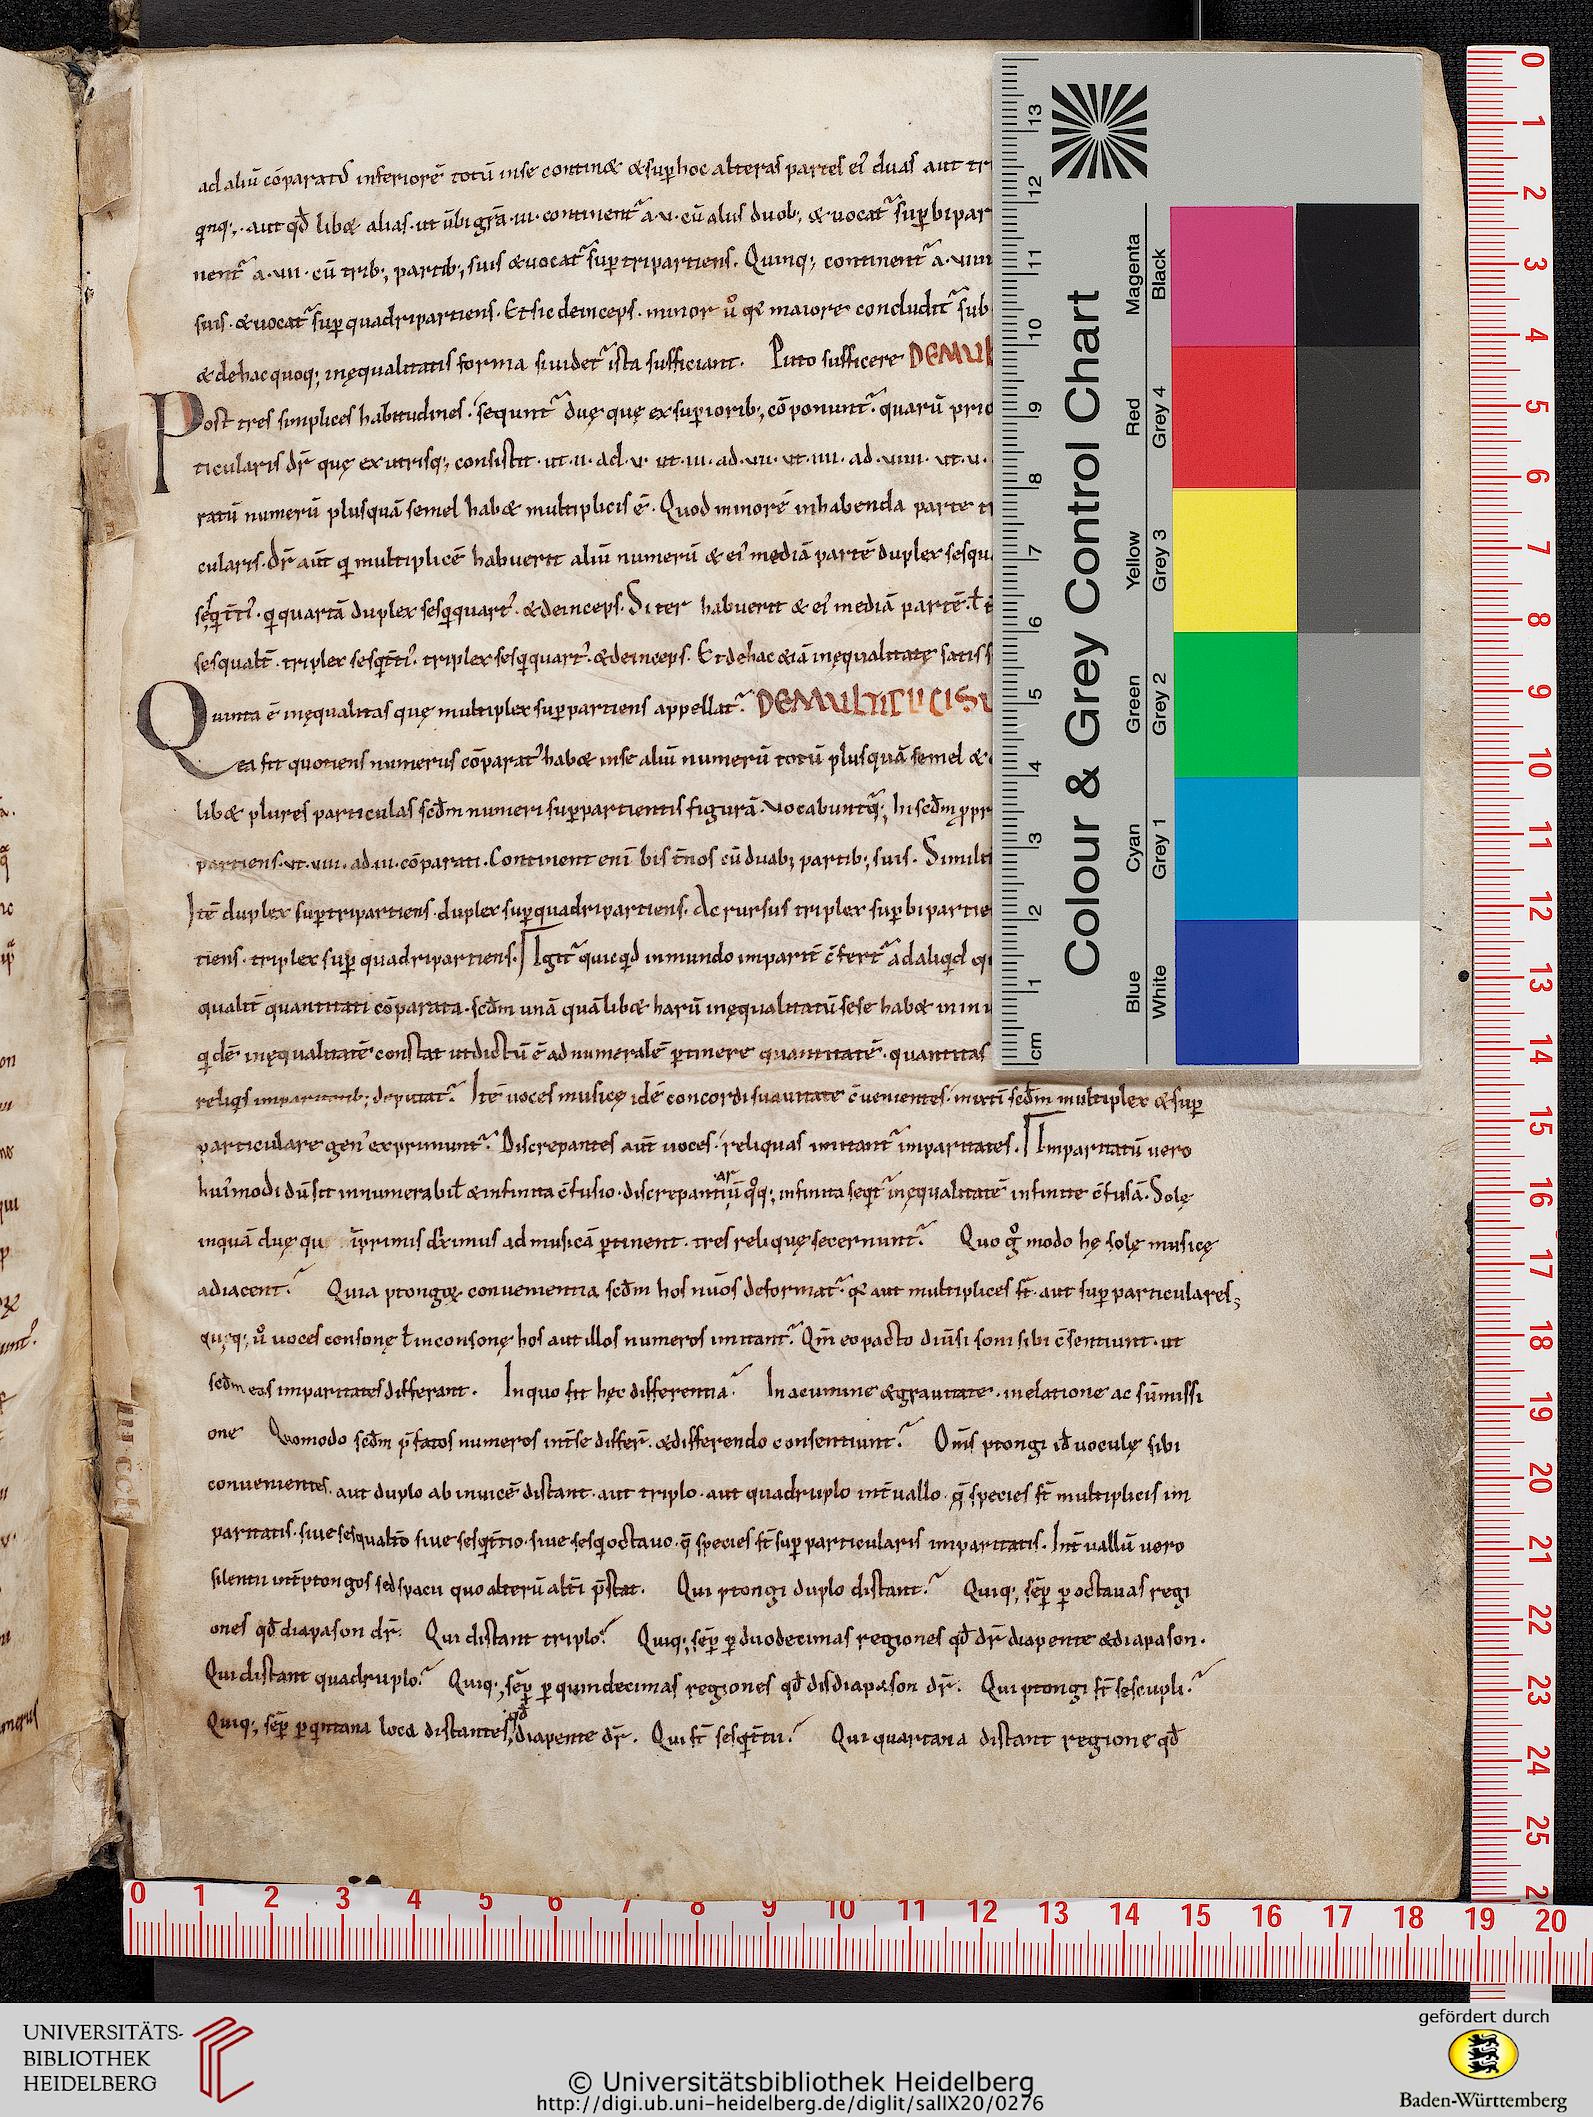 ad aliū cōparatꝰ inferiorē totū inse continꝫ & sup̱ hoc alteras partes eiꝰ duas aut tr
qͥnqꝫ. aut qđ libꝫ alias. ut ūbi grā .iii. continent᷑ a .v. cū aliis duobꝫ & uocat᷑ sup̱bipar
nent᷑ a .vii. cū tribꝫ partibꝫ suis & uocat᷑ sup̱tripartiens. Quinqꝫ continent᷑ a .viiii
suis. & uocat᷑ sup̱quadripartiens. Et sic deinceps. minor ů qͥ a maiore concludit᷑ sub
& de hac quoqꝫ inęqualitatis forma si uidet᷑ ista sufficiant. Puto sufficere DE MUL
Post tres simplices habitudines. sequnt᷑ duę quę ex superioribꝫ cōponunt᷑. quarū prio
ticularis dr̄ quę ex utrisqꝫ consistit. ut .ii. ad .v. ut .iii. ad .vii. ut .iiii. ad .viiii. ut .v.
ratū numerū plusquā semel habꝫ multiplicis ē. Quod minorē in habenda parte t
cularis. Dr̄ aūt qͥ multiplicē habuerit aliū numerū & eiꝰ mediā partē duplex sesqu
sesqͥt̄tiꝰ. qͥ quartā duplex sesqͥquartꝰ. & deinceps. Si ter habuerit & eiꝰ mediā partē. ł
sesqualt̄. triplex sesqͥt̄tiꝰ. triplex sesqͥquartꝰ. & deinceps. Et de hac &iā inęqualitate satis s
Quinta ē inęqualitas quę multiplex sup̱partiens appellat᷑. DE MULTIPLICI SU
ea fit quotiens numerus cōparatꝰ habꝫ inse aliū numerū totū plusquā semel &
libꝫ plures particulas scđm numeri sup̱partientis figurā. Vocabunt᷑qꝫ hi scđm ꝓpr
partiens. ut .viii. ad .iii. cōparati. Continent eni bis t̄nos cū duabꝫ partibꝫ suis. Simili
Itē duplex sup̱tripartiens. duplex sup̱quadripartiens. Ac rursus triplex sup̱bipartie
tiens. triplex sup̱ quadripartiens. Igit᷑ quicqͥd in mundo imparit̄ c̄fert᷑ ad aliqͥd
qualit̄ quantitati cōparata. scđm unā quālibꝫ harū inęqualitatū sese habꝫ
qͥdē inęqualitatē constat ut dictū ē ad numeralē ꝑtinere quantitatē. quantitas
reliqͥs imparitatibꝫ deputat᷑. Itē uoces musicę idē concordi suauitate c̄uenientes. mixti scđm multiplex & sup̱
particulare genꝰ exprimunt᷑. Discrepantes aūt uoces. reliquas imitant᷑ imparitates. Imparitatū uero
huiꝰmodi dū sit innumerabił & infinita c̄fusio. discrepantiarū qͦqꝫ infinita seqͥt᷑ inęqualitatē infinite c̄fusā. Solę
inquā duę qu inprimis diximus ad musicā ꝑtinent. tres reliquę secernunt᷑. Quo g̊ modo hę solę musicę
adiacent? Quia ptongoꝝ conuenientia scđm hos nūos deformat᷑. qͥ aut multiplices st̄. aut sup̱particulares;
quęqꝫ ů uoces consonę ł inconsonę hos aut illos numeros imitant᷑? Qm̄ eo pacto diūsi soni sibi c̄sentiunt. ut
scđm eas imparitates differant. In quo fit hęc differentia? In acumine & grauitate. in elatione ac sūmissi
one Quomodo scđm p̄fatos numeros int̄ se differt̄. & differendo consentiunt? Om̄s ptongi iđ uoculę sibi
conuenientes. aut duplo ab inuicē distant. aut triplo. aut quadruplo int̄uallo. q̄ species st̄ multiplicis im
paritatis. siue sesqualt̄o siue sesqͥt̄tio. siue sesqͥoctauo. q̄ species st̄ sup̱particularis imparitatis. Int̄uallū uero
silentii int̄ ptongos sed spacii quo alterū alt̄i p̄stat. Qui ptongi duplo distant? Quiqꝫ sēp̱ ꝑ octauas regi
ones qđ diapason dr̄. Qui distant triplo? Quiqꝫ sēp̱ ꝑ duodecimas regiones qđ dr̄ diapente & diapason.
Qui distant quadruplo? Quiqꝫ sēp̱ ꝑ quindecimas regiones qđ disdiapason dr̄. Qui ptongi st̄ sescupli?
Quiqꝫ sēp̱ ꝑ qͥntana loca distantes qđ diapente dr̄. Qui st̄ sesqͥt̄tii? Qui quartana distant regione qđ
Colour & Grey Control Chart
Magenta Black
Red Grey 4
Yellow Grey 3
Green Grey 2
Cyan Grey 1
Blue White
cm 1 2 3 4 5 6 7 8 9 10 11 12 13
0 1 2 3 4 5 6 7 8 9 10 11 12 13 14 15 16 17 18 19 20 21 22 23 24 25
0 1 2 3 4 5 6 7 8 9 10 11 12 13 14 15 16 17 18 19 20
UNIVERSITÄTS-
BIBLIOTHEK
HEIDELBERG
© Universitätsbibliothek Heidelberg
http://digi.ub.uni-heidelberg.de/diglit/salIX20/0276
gefördert durch
Baden-Württemberg